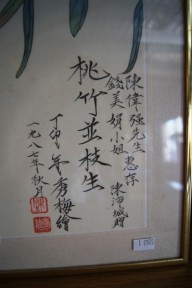 陳偉強先生
錢美娟小姐 惠存
陳海城贈
桃竹並枝生
丁卯年秀梅繪
一九八七年秋